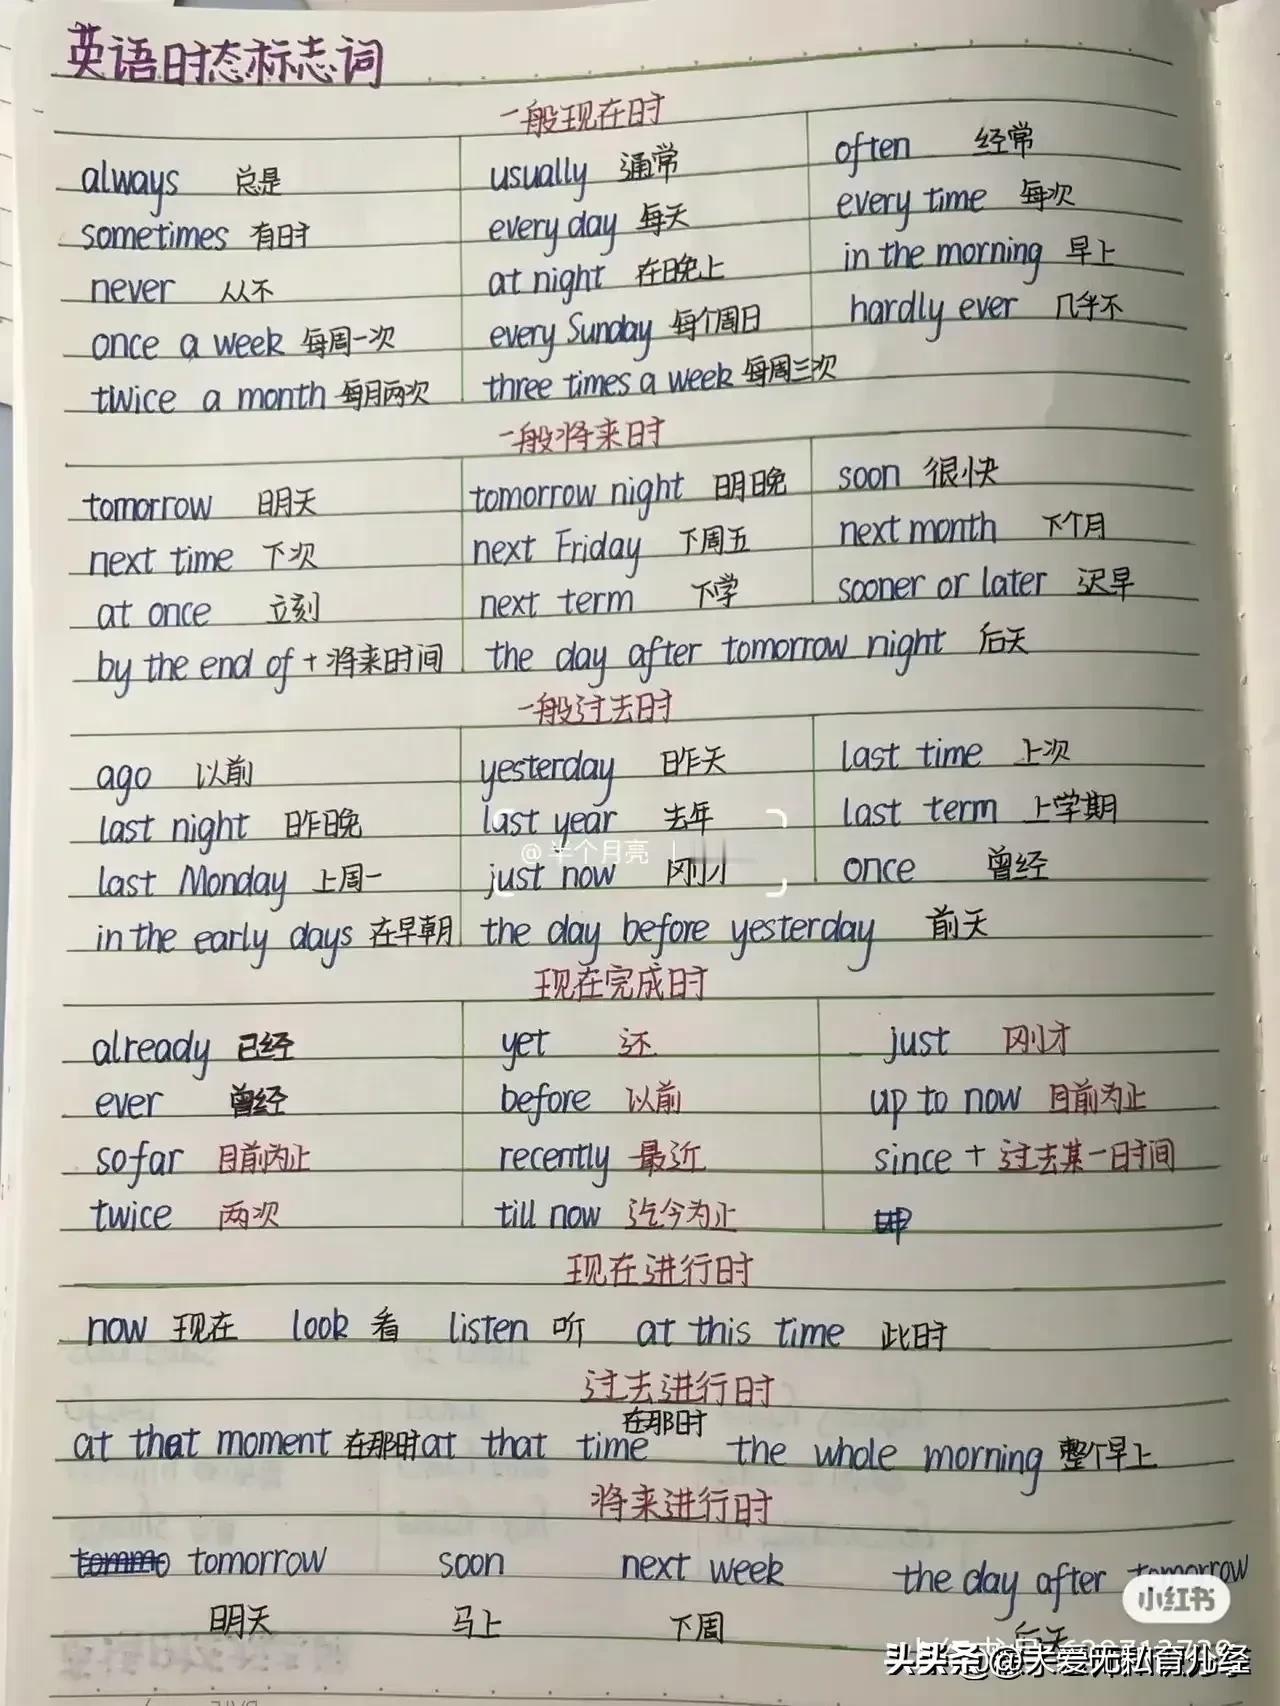 英语时态标志词
一般现在时
always 总是 usually 通常 often 经常
sometimes 有时 every day 每天 every time 每次
never 从不 at night 在晚上 in the morning 早上
once a week 每周一次 every Sunday 每个周日 hardly ever 几乎不
twice a month 每月两次 three times a week 每周三次
一般将来时
tomorrow 明天 tomorrow night 明晚 soon 很快
next time 下次 next Friday 下周五 next month 下个月
at once 立刻 next term 下学 sooner or later 迟早
by the end of + 将来时间 the day after tomorrow night 后天
一般过去时
ago 以前 yesterday 昨天 last time 上次
last night 昨晚 last year 去年 last term 上学期
@半个月亮
last Monday 上周一 just now 刚才 once 曾经
in the early days 在早期 the day before yesterday 前天
现在完成时
already 已经 yet 还 just 刚才
ever 曾经 before 以前 up to now 目前为止
so far 目前为止 recently 最近 since + 过去某一日时间
twice 两次 till now 迄今为止
现在进行时
now 现在 look 看 listen 听 at this time 此时
过去进行时
at that moment 在那时 at that time 在那时 the whole morning 整个早上
将来进行时
tomorrow soon next week the day after tomorrow
明天 马上 下周 后天
小红书
头条@大爱无私育儿经